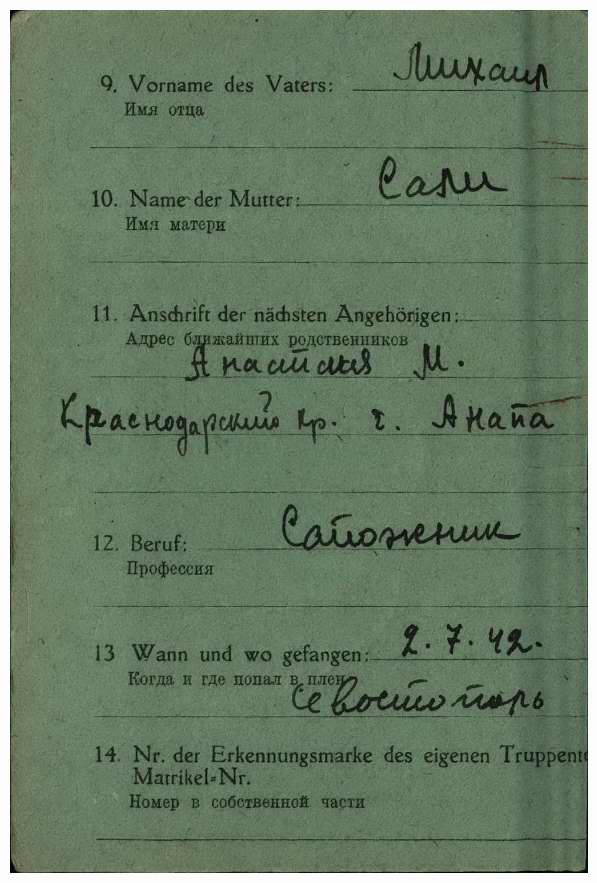 9. Vorname des Vaters: Михаил
Имя отца
10. Name der Mutter: Сали
Имя матери
11. Anschrift der nächsten Angehörigen:
Адрес ближайших родственников
Анастасия М.
Краснодарский кр. г. Анапа
12. Beruf: Сапожник
Профессия
13 Wann und wo gefangen: 2.7.42.
Когда и где попал в плен
Севостополь
14. Nr. der Erkennungsmarke des eigenen Truppente
Matrikel-Nr.
Номер в собственной части